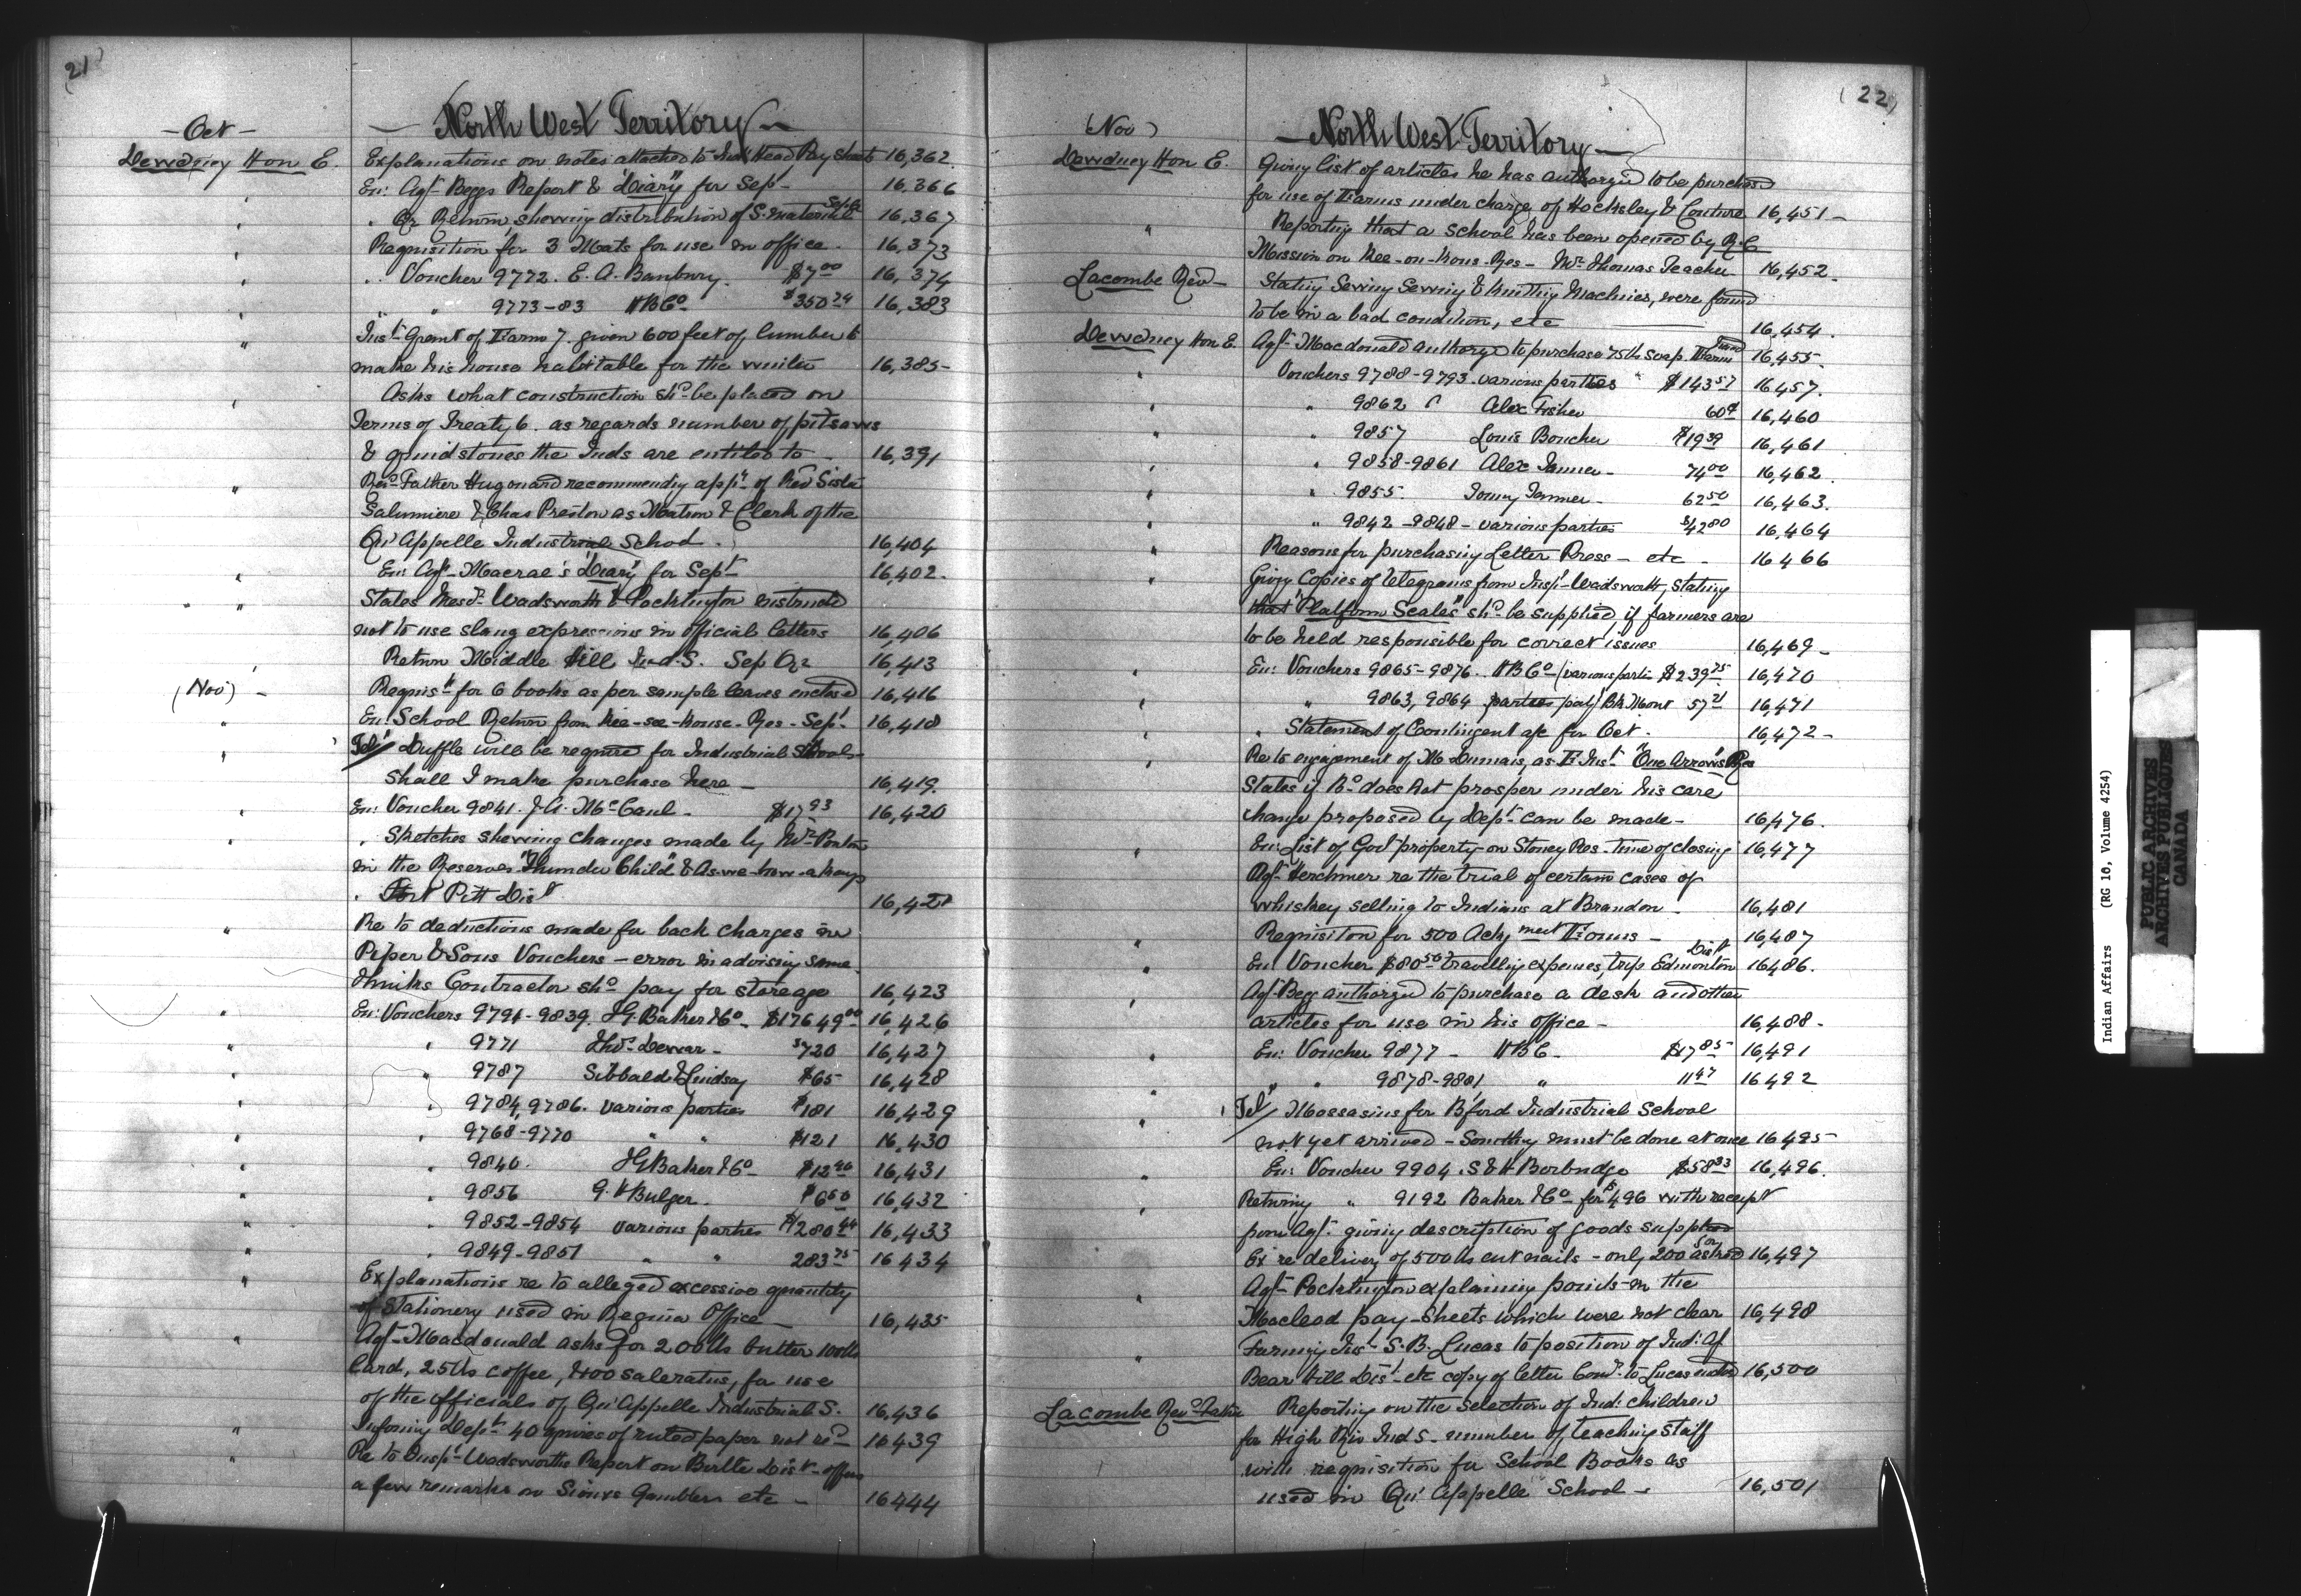 21
— Oct —
— North West Territory —
Dewdney Hon E.
Explanations on notes attached to Head Pay Sheets 16,362.
En: Agt Beggs Report & "Diary" for Sept 16,366
" Qr Return, showing distribution of S. material 16,367
Requisition for 3 Mats for use in office. 16,373
" Voucher 9772. E. A. Banbury. $7.00 16,374
" " 9773-83 HBCo $350 74 16,383
" Inst Grant of Farm 7. given 600 feet of lumber to
make his house habitable for the winter 16,385-
" Asks what construction shd be placed on
Terms of Treaty 6. as regards number of pitsaws
& grindstones the Inds are entitled to — 16,391
" Revd Father Hugonard recommending appt of Rev Sister
& Chas Preston as Matron & Clerk of the
Qu'Appelle Industrial School. 16,404
" En: Agt Macrae's "Diary" for Sept 16,402.
" States Mesrs Wadsworth & Pocklington instructed
not to use slang expressions in official letters 16,406
Return Middle Hill Ind. S. Sep Qr 16,413
(Nov) — Requist for 6 books as per sample leaves enclosed 16,416
" En: School Return from Kee-see-kouse-Res-Sept 16,418
" Tel/ Duffle will be required for Industrial School
shall I make purchase here — 16,419.
" En: Voucher 9841. J. A. McCaul — $17 93 16,420
" " Sketches showing changes made by Mr Ponton
in the Reserves "Thunder Child" &
" Fort Pitt Dist 16,421
" Re to deductions made for back charges in
Piper & Sons Vouchers — error in advising same
thinks Contractor shd pay for storeage 16,423
" En: Vouchers 9791-9839. I.G. Baker & Co $17649 00 16,426
" " 9771 Thos Dewar — $720 16,427
" " 9787 Sibbald & Lindsay $65 16,428
" " 9784, 9786. various parties $181 16,429
" " 9768-9770 " " $121 16,430
" " 9840. I G Baker & Co $12 40 16,431
" " 9856 G. H Bulger. $6 50 16,432
" " 9852-9854 various parties $1280 44 16,433
" " 9849-9851 " " 283 75 16434
" Explanations re to alleged excessive quantity
of Stationery used in Regina Office — 16,435
" Agt Macdonald asks for 200 lbs butter 100 lbs
Lard, 25 lbs coffee, & 100 saleratus, for use
of the officials of Qu'Appelle Industrial S. 16,436
" Informing Dept 40 quires of ruled paper not recd 16439
" Re to Inspt Wadsworths Report on Birtle Dist — offers
a few remarks on Sioux Gamblers etc — 16444
(22)
(Nov)
— North West Territory —
Dewdney Hon E. Giving list of articles he has authorized to be purchased
for use of Farms under charge of Hockley & Couture 16,451 —
" Reporting that a school has been opened by R. C
Mission on Kee-on-Kous-Res — Mr Thomas Teacher 16,452.
Lacombe Rev — Stating Sewing & Knitting Machines, were found
to be in a bad condition, etc 16,454.
Dewdney Hon E. Agt Macdonald authorized to purchase 75 lbs soap 16,455.
" Vouchers 9788-9793. various parties " $143 57 16,457.
" " 9862 Alex Fisher 60¢ 16,460
" " 9857 Louis Boucher $19 39 16,461
" " 9858-9861 Alex Tanner — 74 00 16,462.
" " 9855. Tanner — 62 50 16,463.
" " 9842-9848 — various parties $42 80 16,464
" Reasons for purchasing Letter Press — etc — 16466
" Giving Copies of telegrams from Inspt Wadsworth, stating
that "Platform Scales" shd be supplied, if farmers are
to be held responsible for correct issues 16,469 —
" En: Vouchers 9865-9876. HBCo (various parties $239 75 16,470
" " 9863, 9864 parties Bk Mont 57 21 16,471
" " Statement of Contingent a/c for Oct. 16,472 —
" Re to engagement of M Dumais, as F Inst "One Arrows" Res
States if Bd does not prosper under his care
change proposed by Dept can be made — 16,476.
" En: List of Govt property on Stoney Res. time of closing 16,477
Agt Herchmer re the trial of certain cases of
whiskey selling to Indians at Brandon — 16,481
" Requisition for 500 — 16,487
" En Voucher $80 50 travelling expenses, trip Edmonton Dist 16486.
" Agt Begg authorized to purchase a desk and other
articles for use in his office — 16,488.
" En: Voucher 9877 — HBC — $17 85 16,491
" " " 9878-9881 " 11 47 16492
" Tel/ Moccasins for B'ford Industrial School
not yet arrived — Something must be done at once 16495
" En: Voucher 9904. S & H Borbridge $58 33 16,496.
" Returning " 9192 Baker & Co for $496 with receipt
from Agt giving description of goods supplied
Ex re delivery of 500 lbs cut nails — only 200 asked for 16,497
" Agt Pocklington explaining points in the
Macleod pay-sheets which were not clear 16,498
" Farming Inst S. B. Lucas to position of Ind: Agt
Bear Hill Dist etc copy of letter Comr to Lucas 16,500
Lacombe Revd Father Reporting on the selection of Ind: children
for High Riv Ind S — number of teaching staff
with requisition for School Books as
used in Qu'Appelle School — 16,501
Indian Affairs (RG 10, Volume 4254)
PUBLIC ARCHIVES
ARCHIVES PUBLIQUES
CANADA